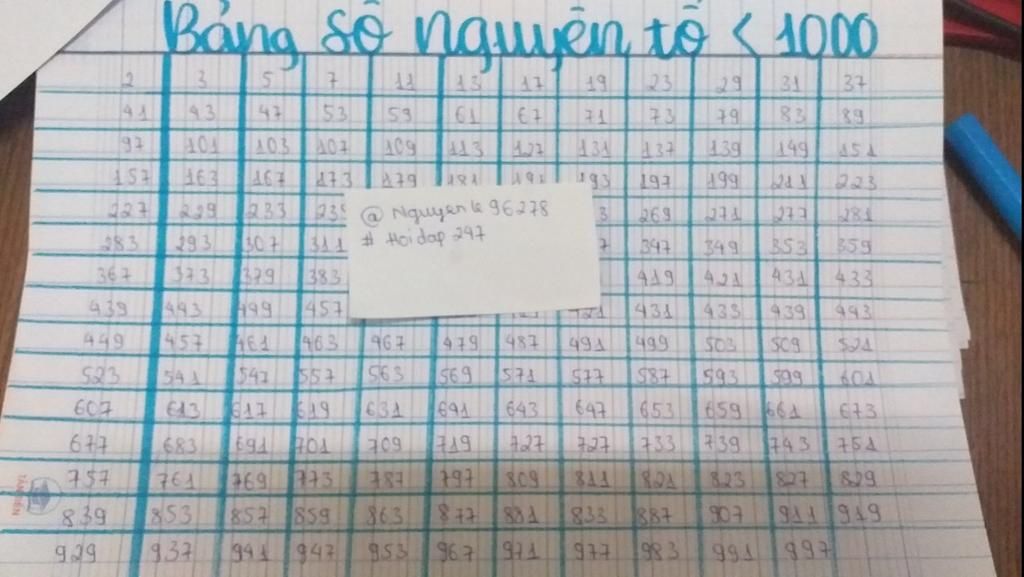 Bảng số nguyên tố < 1000
2 3 5 7 11 13 17 19 23 29 31 37
41 43 47 53 59 61 67 71 73 79 83 89
97 101 103 107 109 113 127 131 137 139 149 151
157 163 167 173 179 181 191 193 197 199 211 223
227 229 233 239 269 271 277 281
283 293 307 311 347 349 353 359
367 373 379 383 419 421 431 433
439 443 499 457 431 433 439 443
449 457 461 463 467 479 487 491 499 503 509 521
523 541 547 557 563 569 571 577 587 593 599 601
607 613 617 619 631 641 643 647 653 659 661 673
677 683 691 701 709 719 727 727 733 739 743 751
757 761 769 773 787 797 809 811 821 823 827 829
839 853 857 859 863 877 881 883 887 907 911 919
929 937 941 947 953 967 971 977 983 991 997
@ Nguyenle96278
# Hoidap 247